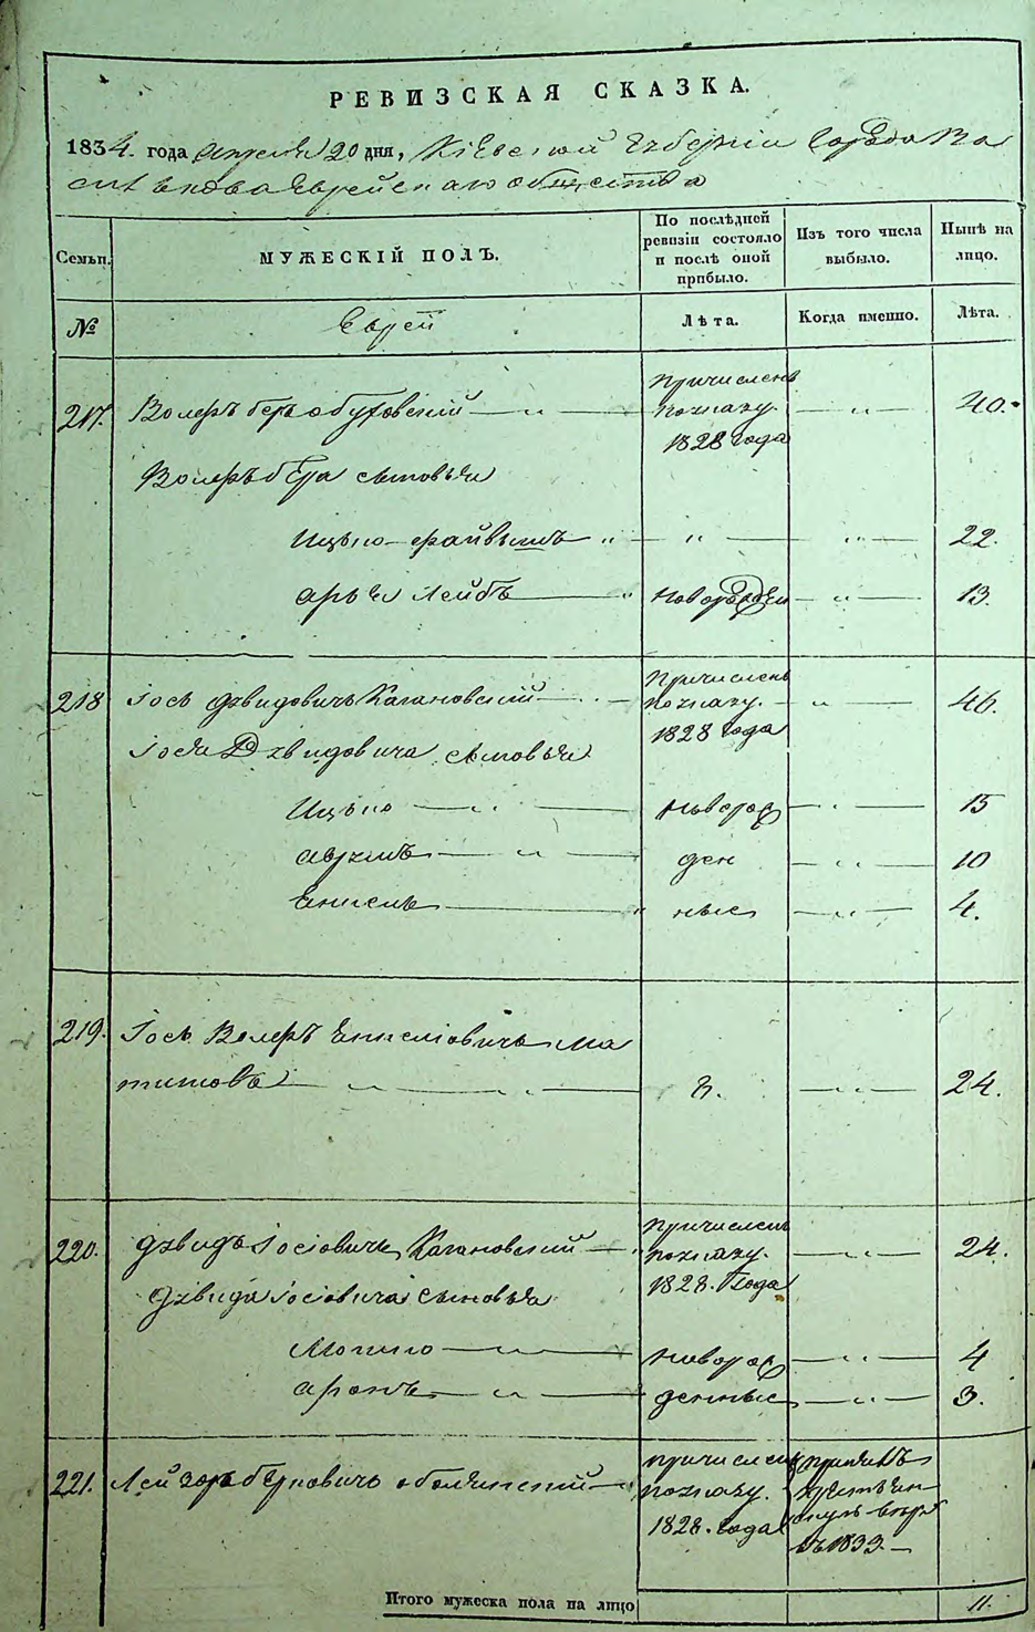 РЕВИЗСКАЯ СКАЗКА.
1834. года Апреля 20 дня, Кіевской Губерніи Города Ва
силькова Еврейскаго общества
Семьи.
МУЖЕСКІЙ ПОЛЪ.
По послѣдней ревизіи состояло и послѣ оной прибыло.
Изъ того числа выбыло.
Нынѣ на лицо.
№
Еврей
Лѣта.
Когда именно.
Лѣта.
217. Волфъ беръ обуховскій — „ — Причисленъ по указу. 1828 года — „ — 40.
Волфъ бера сыновья
Ицько файвышъ „ — „ — „ — 22.
арья Лейбъ — „ Новорожден — „ — 13.
218 Іось Дувидовичъ Кагановскій — Причисленъ по указу. 1828 года — „ — 46.
Іося Дувидовича сыновья
Ицько — „ — новорож — „ — 15
аврумъ — „ — ден — „ — 10
— „ ные — „ — 4.
219. Іось Волфъ
— „ — „ — 8. — „ — 24.
220. Дувидъ Іосіовичъ Кагановскій — „ Причисленъ по указу. 1828. года — „ — 24.
Дувида Іосіовича сыновья
Мошко — „ — новорож — „ — 4
аронъ — „ — денные — „ — 3.
221. Лейзоръ берковичъ — причисленъ по указу. 1828. года
въ 1833. —
Итого мужеска пола на лицо 11.